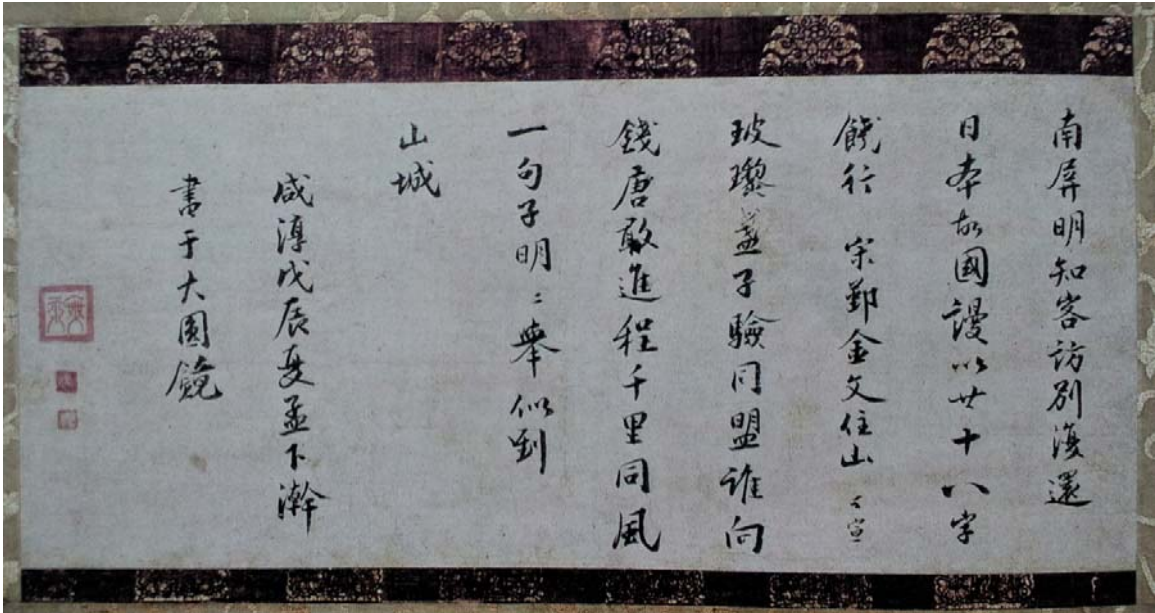 南屏明知客訪別復還
日本故國謾以廿十八字
餞行 宋鄞金文住山 宣
玻瓈盞子驗同盟誰向
錢唐敢進程千里同風
一句子明〻舉似到
山城
咸淳戊辰夏孟下澣
書于大圓鏡